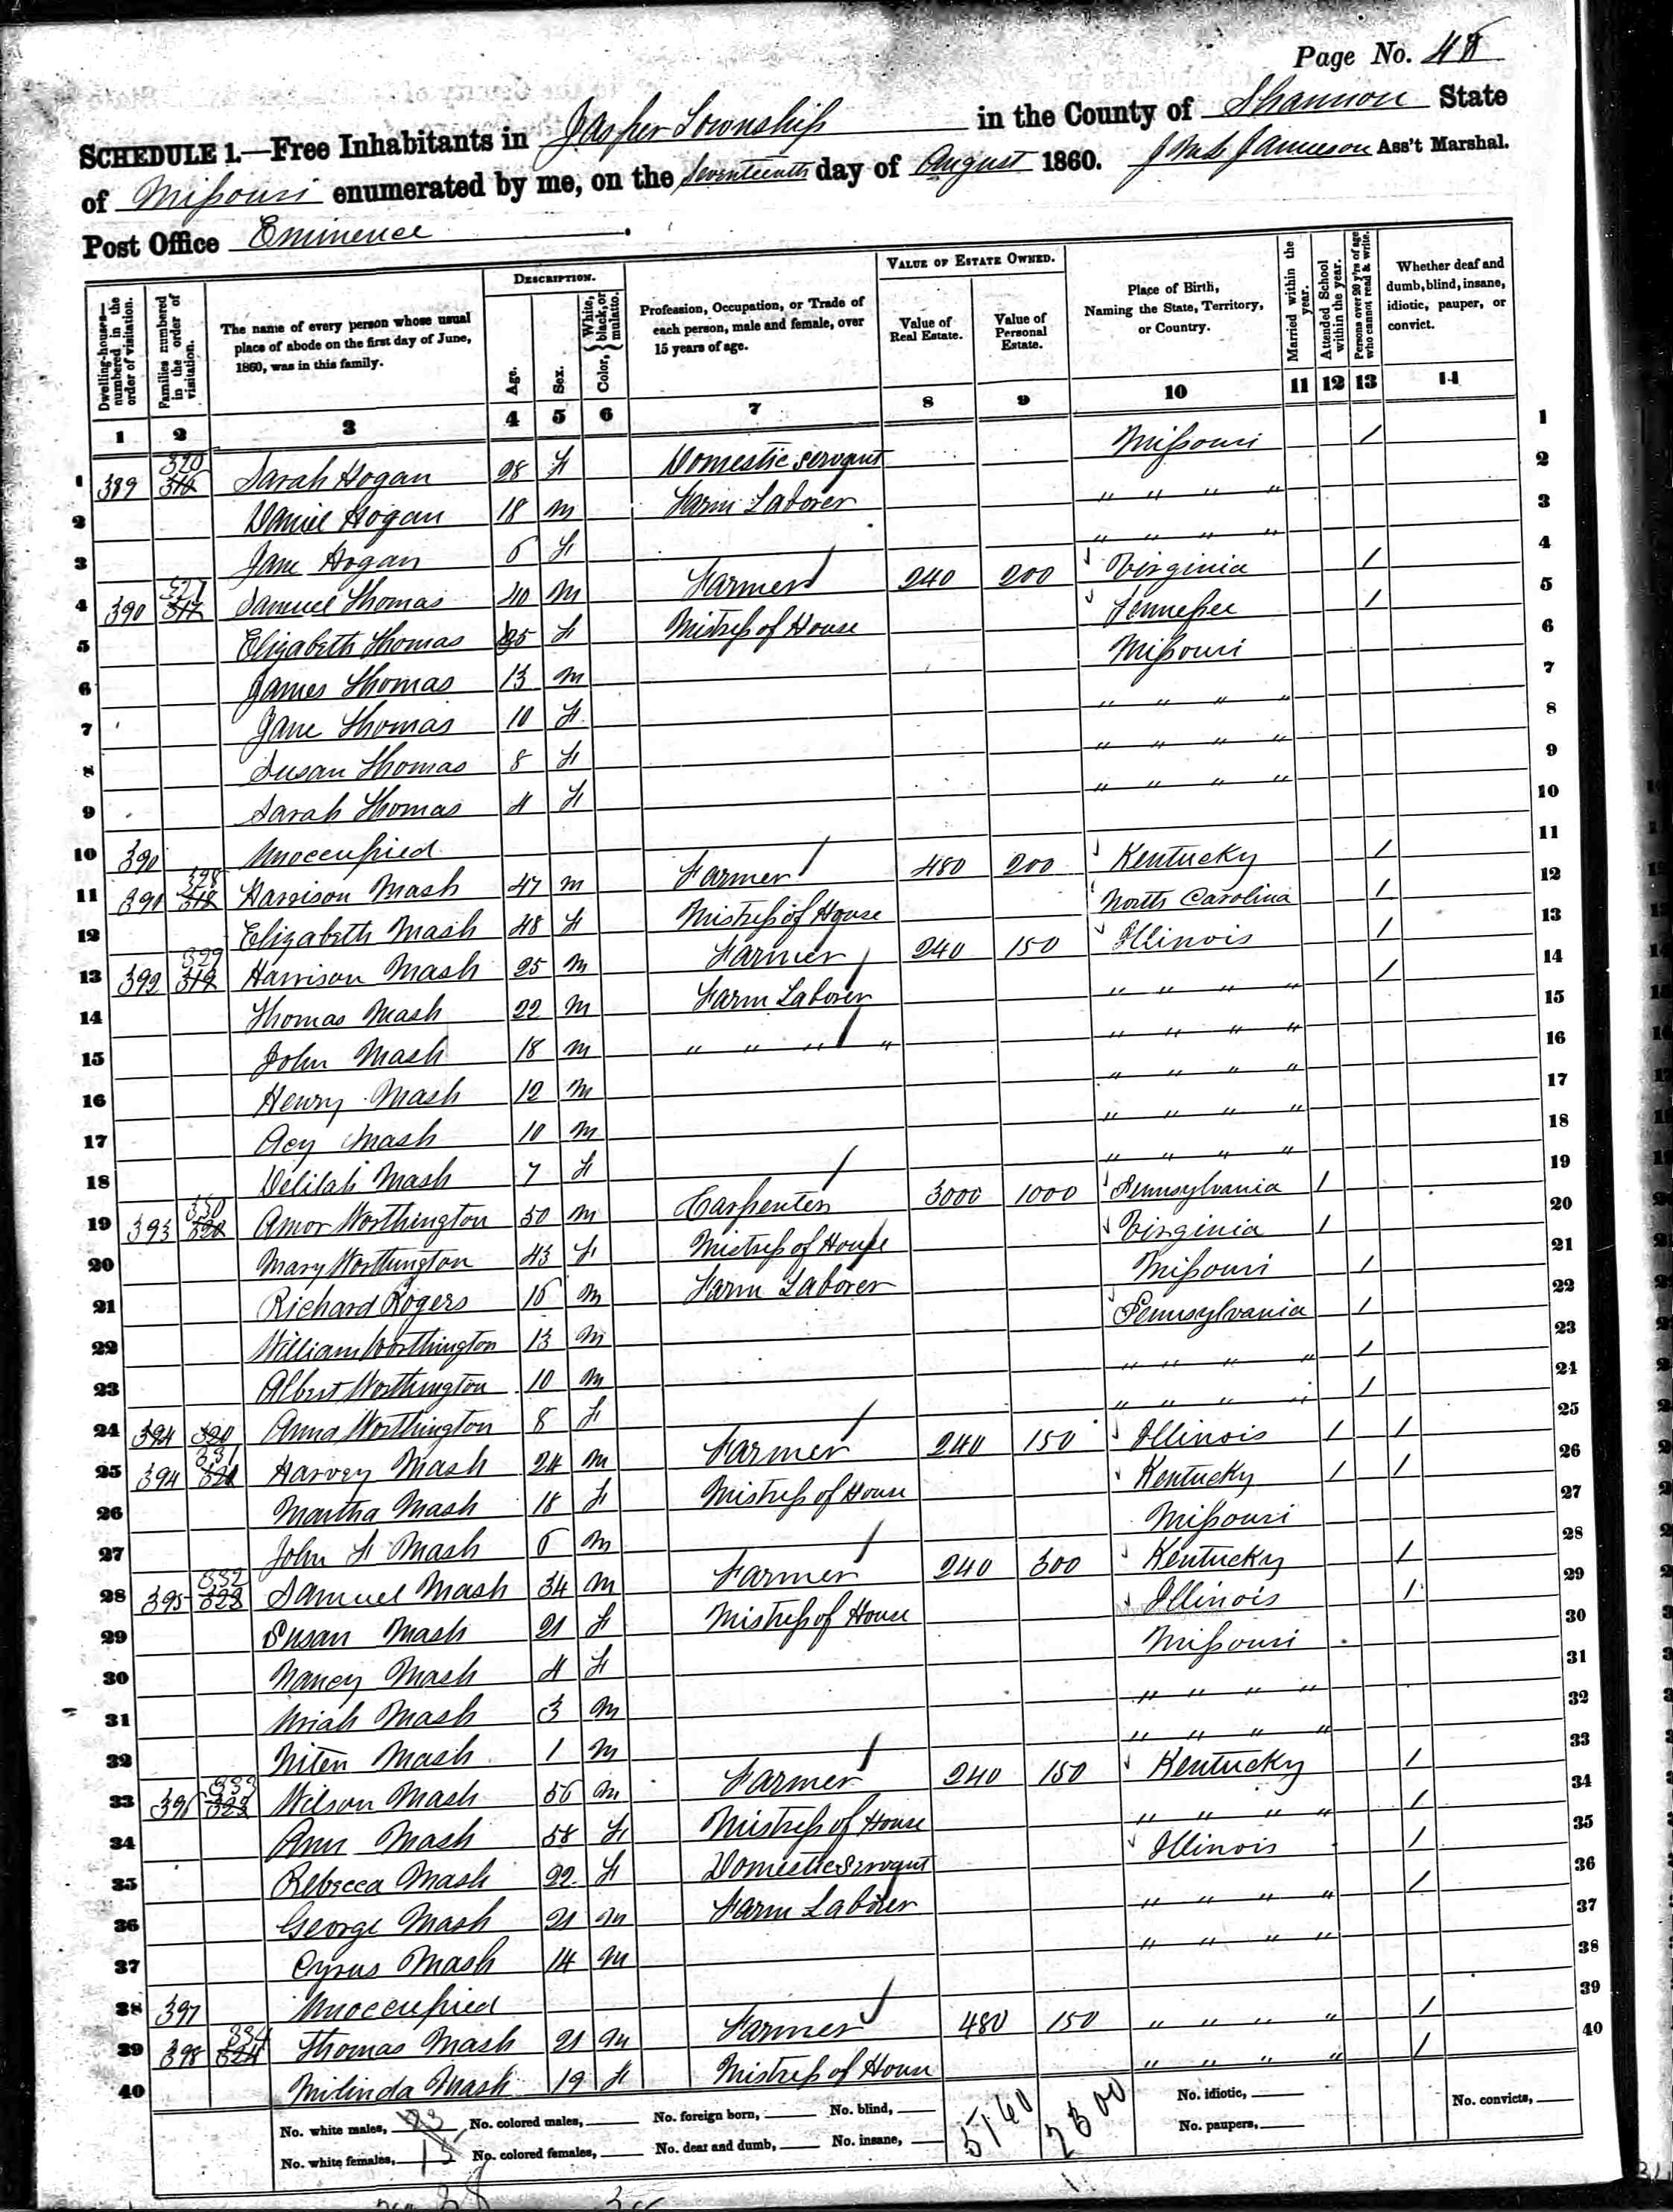 Page No. 48
SCHEDULE 1.—Free Inhabitants in Jasper Township in the County of Shannon State
of Missouri enumerated by me, on the Seventeenth day of August 1860. Jamieson Ass't Marshal.
Post Office Eminence
Dwelling-houses—numbered in the order of visitation.
Families numbered in the order of visitation.
The name of every person whose usual place of abode on the first day of June, 1860, was in this family.
DESCRIPTION.
Age.
Sex.
Color, White, black, or mulatto.
Profession, Occupation, or Trade of each person, male and female, over 15 years of age.
VALUE OF ESTATE OWNED.
Value of Real Estate.
Value of Personal Estate.
Place of Birth, Naming the State, Territory, or Country.
Married within the year.
Attended School within the year.
Persons over 20 y'rs of age who cannot read & write.
Whether deaf and dumb, blind, insane, idiotic, pauper, or convict.
1 2 3 4 5 6 7 8 9 10 11 12 13 14
1 389 Sarah Hogan 28 f Domestic servant Missouri / 1
2 Daniel Hogan 18 m Farm Laborer " " " " 2
3 Jane Hogan 6 f " " " " 3
4 390 Samuel Thomas 40 m Farmer 240 200 Virginia / 4
5 Elizabeth Thomas 25 f Mistress of House Tennessee / 5
6 James Thomas 13 m Missouri 6
7 Jane Thomas 10 f " " " " 7
8 Susan Thomas 8 f " " " " 8
9 Sarah Thomas 4 f " " " " 9
10 390 Unoccupied 10
11 391 328 318 Harrison Mash 47 m Farmer 480 200 Kentucky / 11
12 Elizabeth Mash 48 f Mistress of House North Carolina / 12
13 392 329 319 Harrison Mash 25 m Farmer 240 150 Illinois / 13
14 Thomas Mash 22 m Farm Laborer " " " " / 14
15 John Mash 18 m " " " " " " " " 15
16 Henry Mash 12 m " " " " 16
17 Acy Mash 10 m " " " " 17
18 Delilah Mash 7 f " " " " 18
19 393 330 320 Amor Worthington 50 m Carpenter 3000 1000 Pennsylvania / 19
20 Mary Worthington 43 f Mistress of House Virginia / 20
21 Richard Rogers 16 m Farm Laborer Missouri / 21
22 William Worthington 13 m Pennsylvania / 22
23 Albert Worthington 10 m " " " " / 23
24 394 320 Anna Worthington 8 f " " " " / 24
25 394 331 321 Harvey Mash 24 m Farmer 240 150 Illinois / / 25
26 Martha Mash 18 f Mistress of House Kentucky / / 26
27 John F Mash 6 m Missouri 27
28 395 332 322 Samuel Mash 34 m Farmer 240 300 Kentucky / 28
29 Susan Mash 21 f Mistress of House Illinois / 29
30 Nancy Mash 4 f Missouri 30
31 Uriah Mash 3 m " " " " 31
32 Mash 1 m " " " " 32
33 396 333 323 Wilson Mash 56 m Farmer 240 150 Kentucky / 33
34 Ann Mash 58 f Mistress of House " " " " / 34
35 Rebecca Mash 22 f Domestic Servant Illinois / 35
36 George Mash 21 m Farm Laborer " " " " / 36
37 Cyrus Mash 14 m " " " " 37
38 397 Unoccupied 38
39 398 334 324 Thomas Mash 21 m Farmer 480 150 " " " " / 39
40 Milinda Mash 19 f Mistress of House " " " " / 40
No. white males, 23 No. colored males, No. foreign born, No. blind, 5160 2300 No. idiotic, No. convicts,
No. white females, 15 No. colored females, No. deaf and dumb, No. insane, No. paupers,